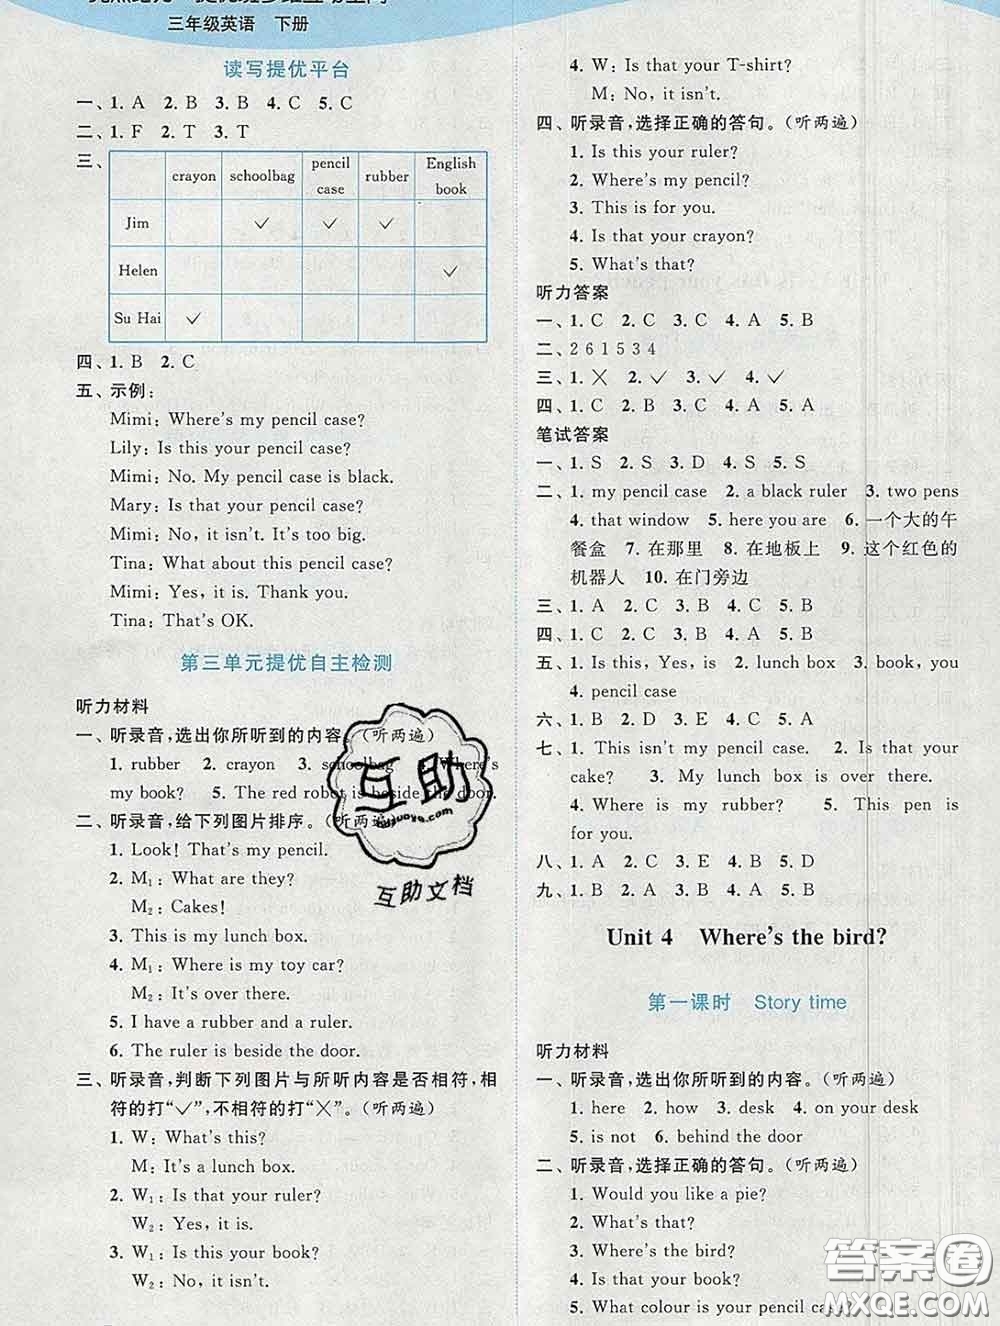 三年级英语 下册
读写提优平台
一、1. A 2. B 3. B 4. C 5. C
二、1. F 2. T 3. T
三、
crayon schoolbag pencil case rubber English book
Jim ✓ ✓ ✓
Helen ✓
Su Hai ✓
四、1. B 2. C
五、示例：
Mimi: Where's my pencil case?
Lily: Is this your pencil case?
Mimi: No. My pencil case is black.
Mary: Is that your pencil case?
Mimi: No, it isn't. It's too big.
Tina: What about this pencil case?
Mimi: Yes, it is. Thank you.
Tina: That's OK.
第三单元提优自主检测
听力材料
一、听录音，选出你所听到的内容。（听两遍）
1. rubber 2. crayon 3. schoolbag 4. Where's
my book? 5. The red robot is beside the door.
二、听录音，给下列图片排序。（听两遍）
1. Look! That's my pencil.
2. M₁: What are they?
M₂: Cakes!
3. This is my lunch box.
4. M₁: Where is my toy car?
M₂: It's over there.
5. I have a rubber and a ruler.
6. The ruler is beside the door.
三、听录音，判断下列图片与所听内容是否相符，相
符的打“✓”，不相符的打“✕”。（听两遍）
1. W: What's this?
M: It's a lunch box.
2. W₁: Is that your ruler?
W₂: Yes, it is.
3. W₁: Is this your book?
W₂: No, it isn't.
4. W: Is that your T-shirt?
M: No, it isn't.
四、听录音，选择正确的答句。（听两遍）
1. Is this your ruler?
2. Where's my pencil?
3. This is for you.
4. Is that your crayon?
5. What's that?
听力答案
一、1. C 2. C 3. C 4. A 5. B
二、2 6 1 5 3 4
三、1. ✕ 2. ✓ 3. ✓ 4. ✓
四、1. C 2. B 3. C 4. A 5. A
笔试答案
一、1. S 2. S 3. D 4. S 5. S
二、1. my pencil case 2. a black ruler 3. two pens
4. that window 5. here you are 6. 一个大的午
餐盒 7. 在那里 8. 在地板上 9. 这个红色的
机器人 10. 在门旁边
三、1. A 2. C 3. B 4. C 5. B 6. A
四、1. C 2. B 3. C 4. B 5. C 6. B
五、1. Is this, Yes, is 2. lunch box 3. book, you
4. pencil case
六、1. B 2. D 3. D 4. A 5. C 6. A
七、1. This isn't my pencil case. 2. Is that your
cake? 3. My lunch box is over there.
4. Where is my rubber? 5. This pen is
for you.
八、1. A 2. C 3. E 4. B 5. D
九、1. B 2. A 3. B 4. A 5. B
Unit 4 Where's the bird?
第一课时 Story time
听力材料
一、听录音，选出你所听到的内容。（听两遍）
1. here 2. how 3. desk 4. on your desk
5. is not 6. behind the door
二、听录音，选择正确的答句。（听两遍）
1. Would you like a pie?
2. What's that?
3. Where's the bird?
4. Is that your book?
5. What colour is your pencil case?
互助
互助文档
答案圈
MXQE.COM